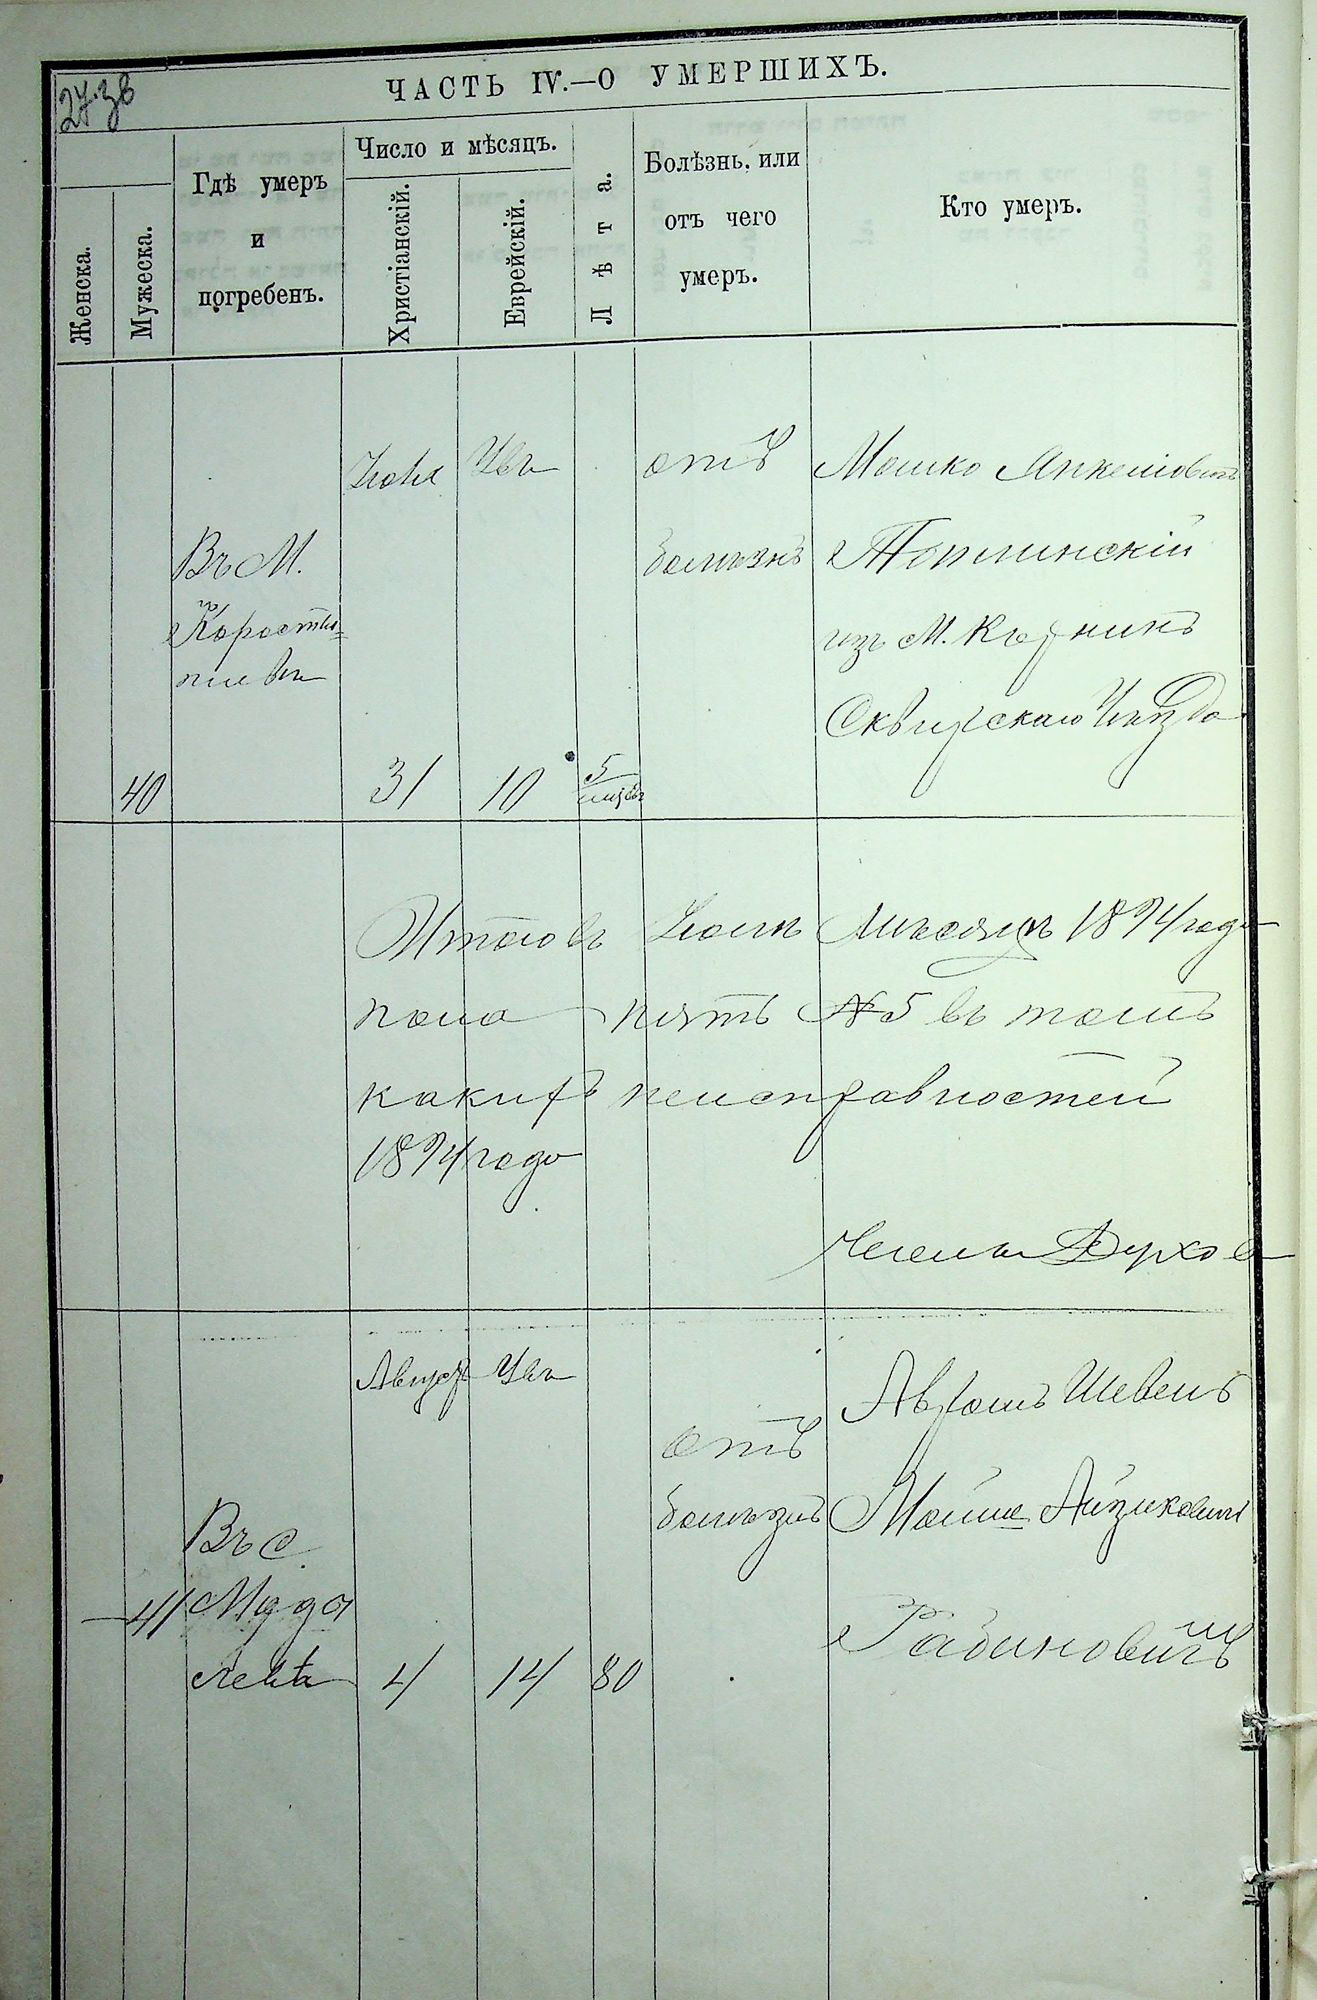 27 зв
ЧАСТЬ IV.—О УМЕРШИХЪ.
Женска.
Мужеска.
Гдѣ умеръ
и
погребенъ.
Число и мѣсяцъ.
Христіанскій.
Еврейскій.
Лѣта.
Болѣзнь, или
отъ чего
умеръ.
Кто умеръ.
40
Въ М.
Коросты=
шевѣ
Іюля
31
10
5
отъ
болѣзнъ
Мошко Янкелiовичъ
изъ М. Корнинъ
Сквирскаго Уѣзда
Итого въ Іюлѣ Мѣсяцѣ 1894 года
пола пять № 5 въ томъ
какихъ неисправностей
1894 года
41
Въ с.
Август
4
14
80
отъ
болѣзнъ
Аврамъ Шевель
Мойше Айзиковичъ
Рабиновичъ